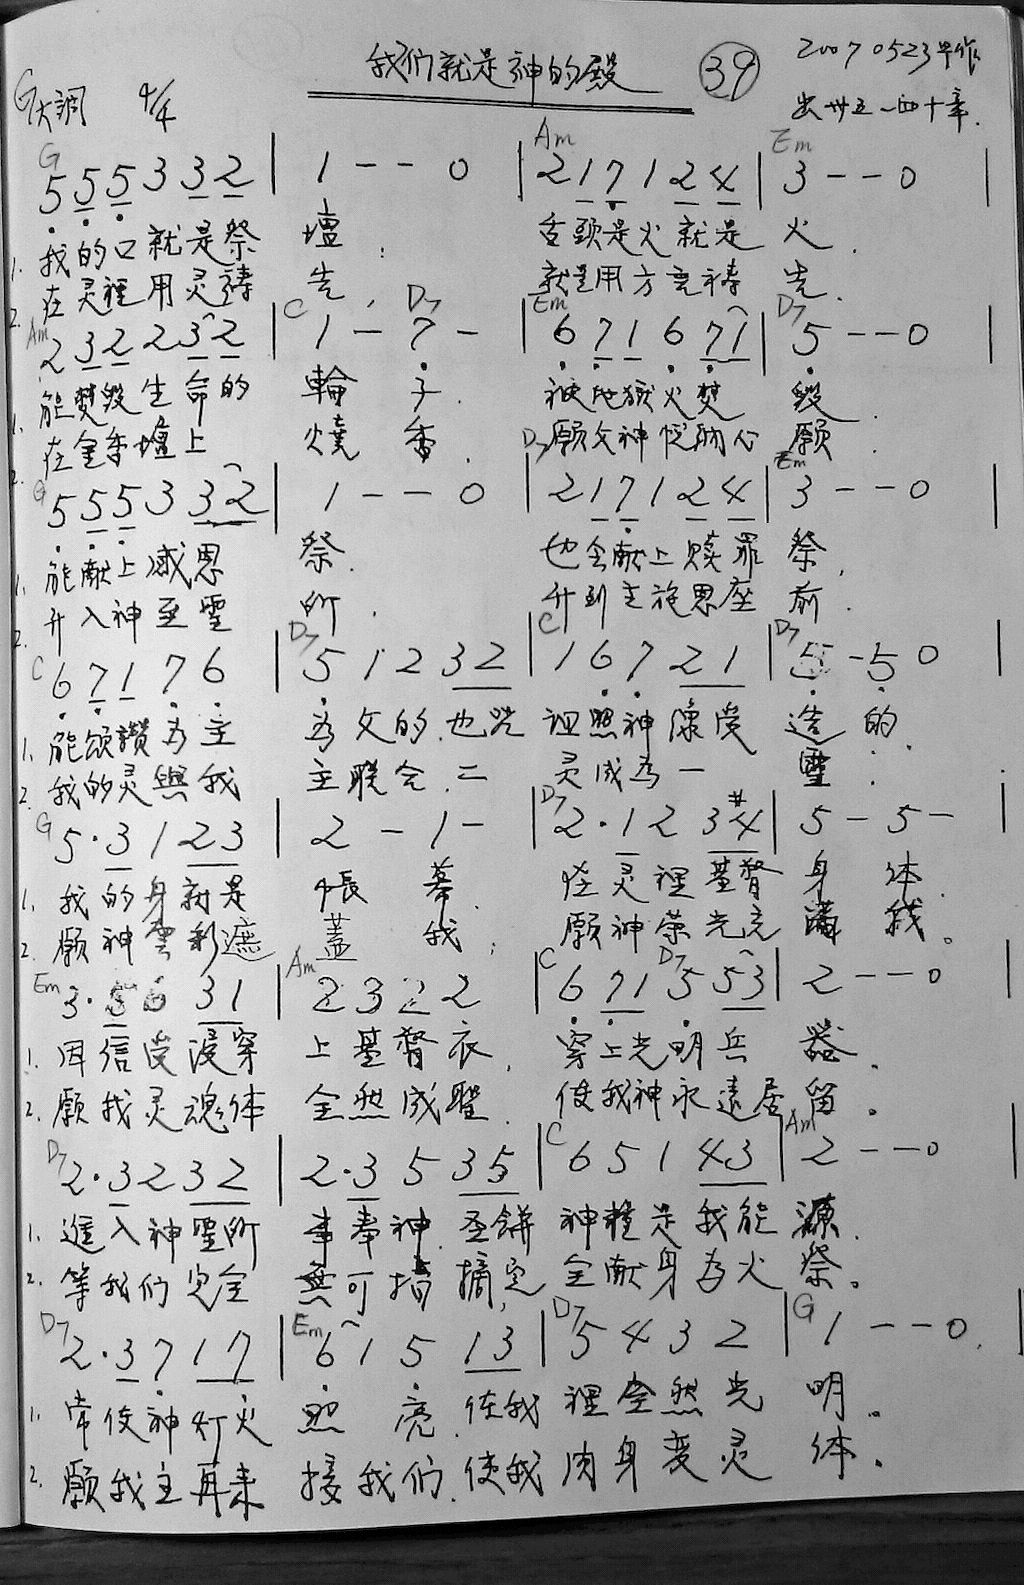 我们就是神的殿 ㊴ 20070523早作
G大調 4/4 出卅五一四十章.
G Am Em
5 5 5 3 3 2 | 1 - - 0 | 2 1 7 1 2 4 | 3 - - 0 |
1. 我的口就是祭 壇. 舌頭是火就是 火.
2. 在灵裡用灵禱 告. 就是用方言禱 告.
Am C D7 Em D7
2 3 2 2 3 2 | 1 - 7 - | 6 7 1 6 7 1 | 5 - - 0 |
1. 能焚毀生命的 輪 子. 被地獄火焚 毀.
2. 在金香壇上 燒 香. 願父神悦納心 願.
G D7 Em
5 5 5 3 3 2 | 1 - - 0 | 2 1 7 1 2 4 | 3 - - 0 |
1. 能献上感恩 祭. 也会献上赎罪 祭.
2. 升入神至聖 所. 升到主施恩座 前.
C D7 C D7
6 7 1 7 6 | 5 1 2 3 2 | 1 6 7 2 1 | 5 - 5 0 |
1. 能頌讚为主 为父的.也咒 诅照神像受 造的.
2. 我的灵與我 主联合.二 灵成为一 靈.
G D7
5·3 1 2 3 | 2 - 1 - | 2·1 2 3 #4 | 5 - 5 - |
1. 我的身就是 帳 幕. 灵裡基督 身 体.
2. 願神雲彩遮 蓋 我; 願神荣光充 滿 我。
Em Am C D7
3·5 6 3 1 | 2 3 2 2 | 6 7 1 5 5 3 | 2 - - 0
1. 因信受浸穿 上基督衣, 穿上光明兵 器.
2. 願我灵魂体 全然成聖. 使我神永遠居 留。
D7 C Am
2·3 2 3 2 | 2·3 5 3 5 | 6 5 1 4 3 | 2 - - 0
1. 進入神聖所 事奉神.圣餅 神糧是我能 源.
2. 等我们完全 無可指摘,完 全献身为火 祭。
D7 Em D7 G
2·3 7 1 7 | 6 1 5 1 3 | 5 4 3 2 | 1 - - 0. |
1. 常使神灯火 照 亮.使我 裡全然光 明。
2. 願我主再来 接我们.使我 肉身变灵 体.